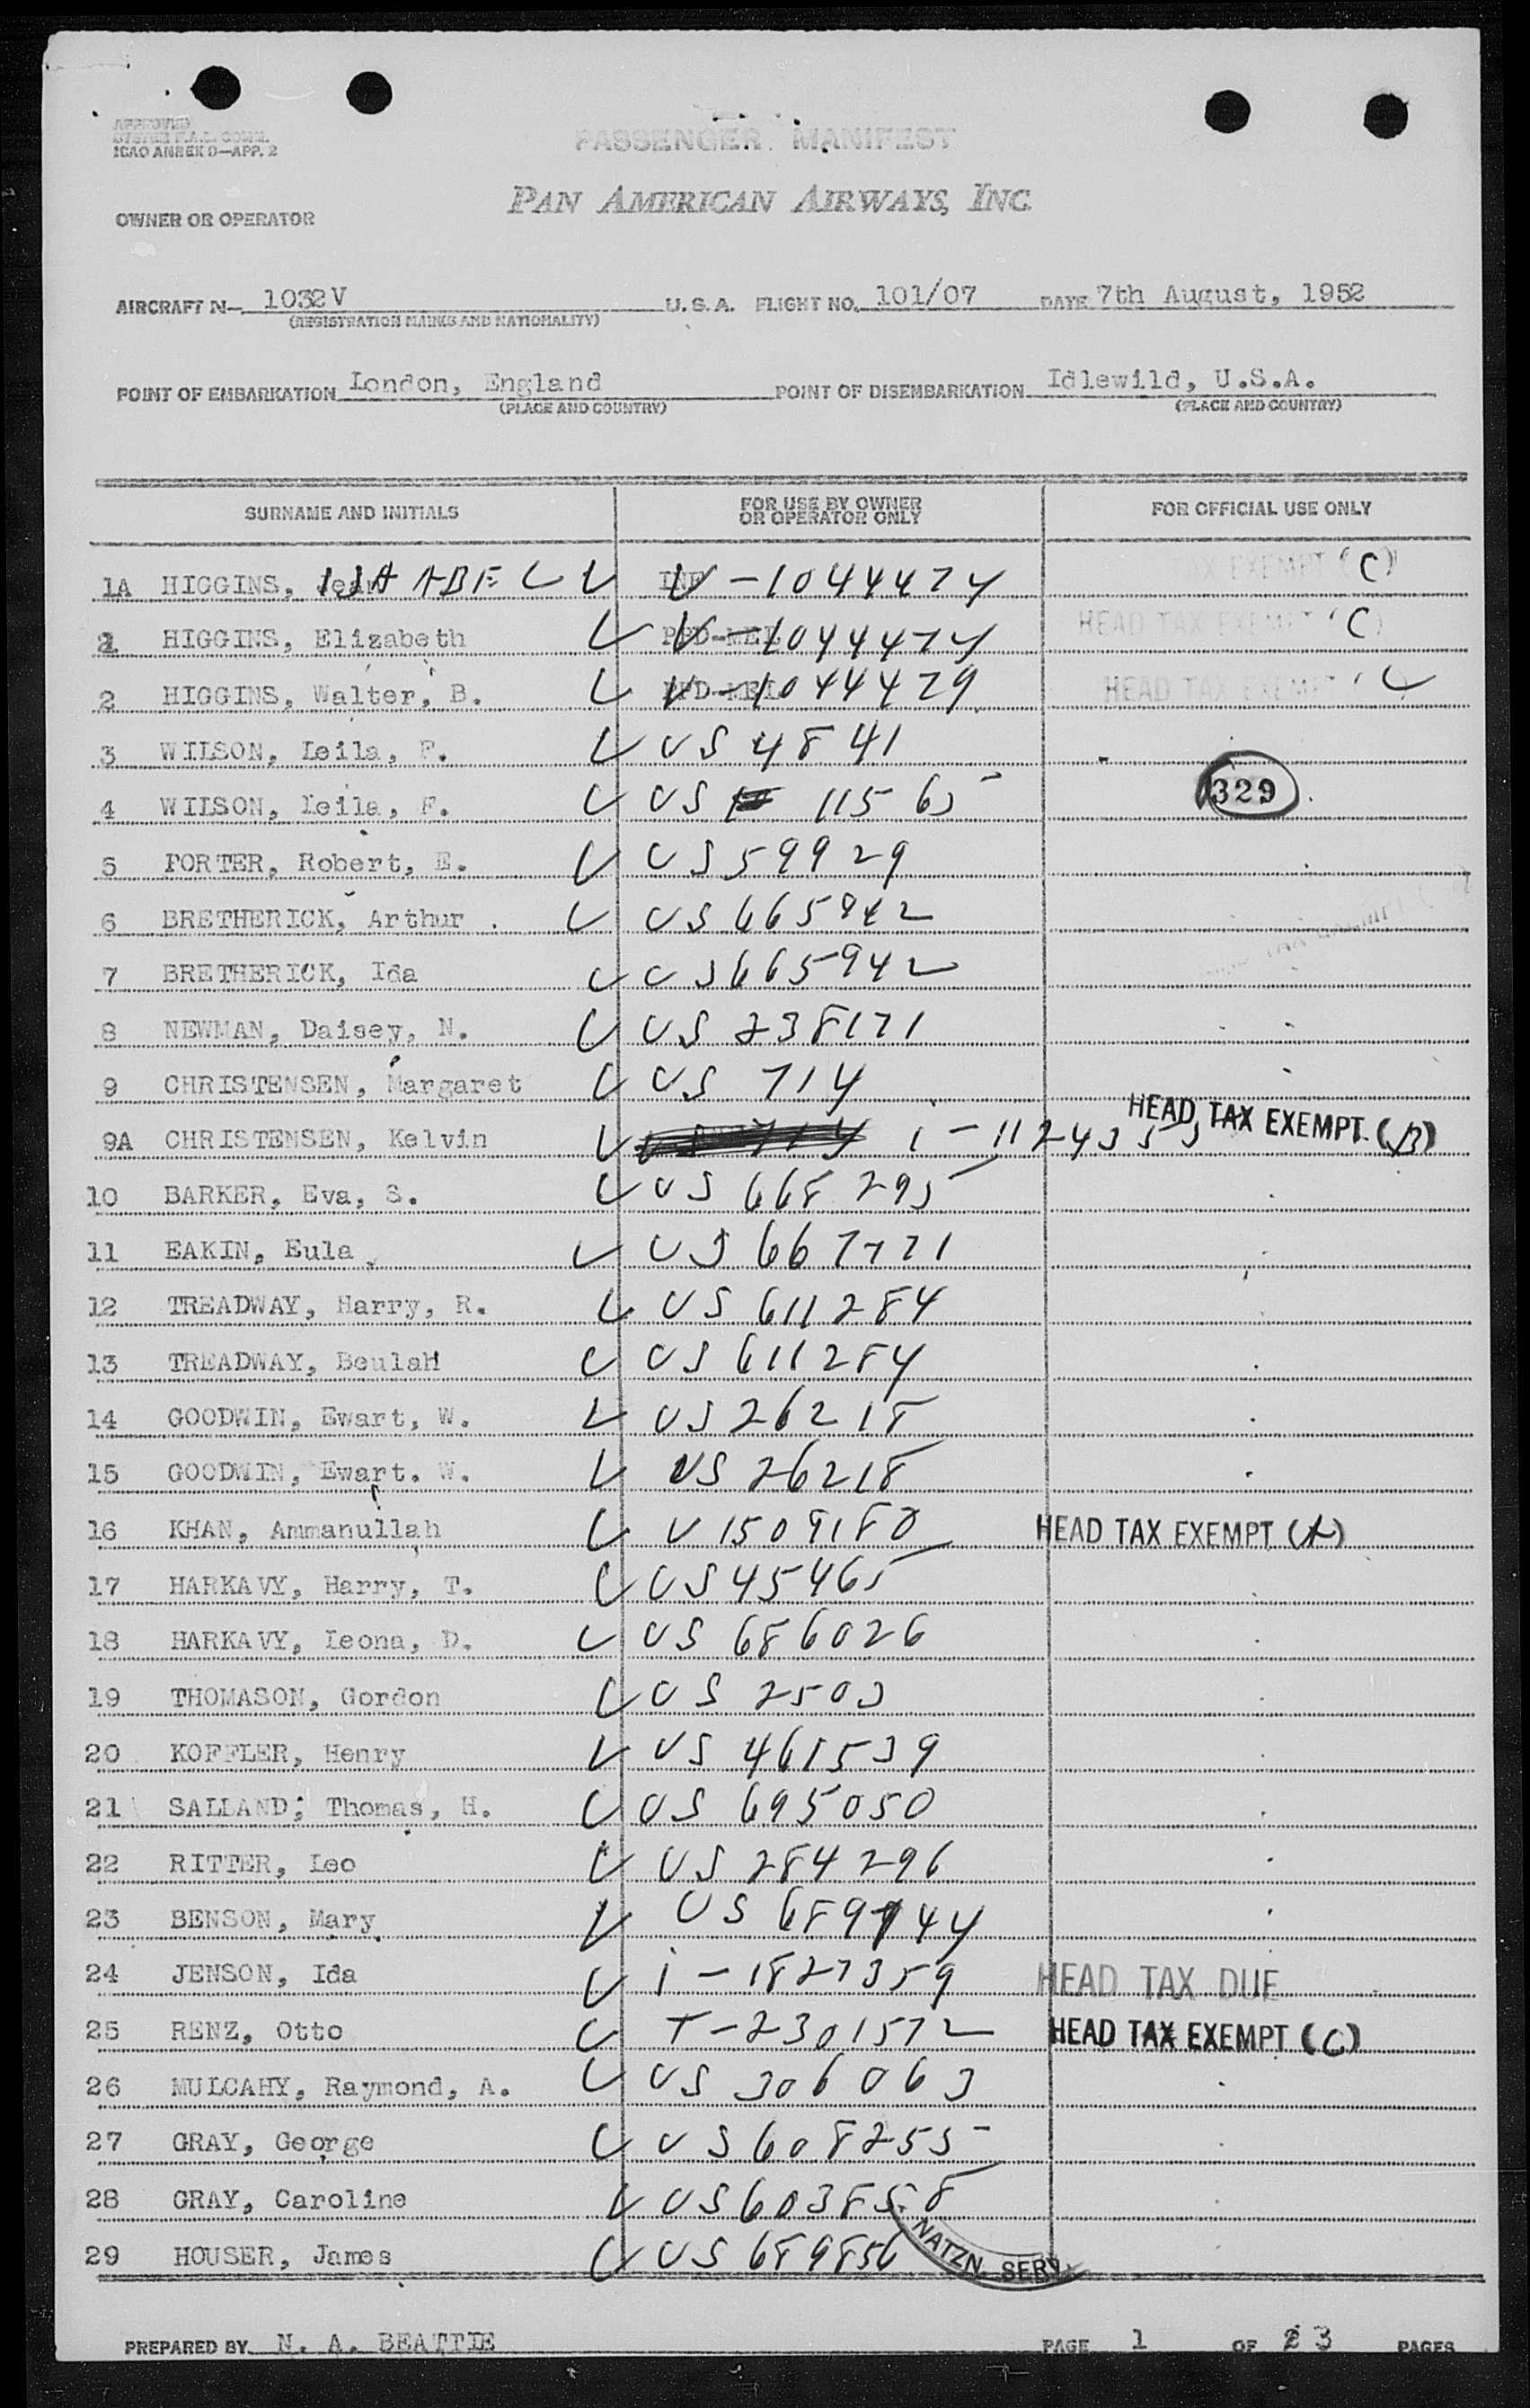 APPROVED
ICAO ANNEX 9—APP. 2
PASSENGER MANIFEST
PAN AMERICAN AIRWAYS, INC.
OWNER OR OPERATOR
AIRCRAFT N- 1032V U.S.A. FLIGHT NO. 101/07 DATE 7th August, 1952
(REGISTRATION MARKS AND NATIONALITY)
POINT OF EMBARKATION London, England POINT OF DISEMBARKATION Idlewild, U.S.A.
(PLACE AND COUNTRY) (PLACE AND COUNTRY)
SURNAME AND INITIALS FOR USE BY OWNER OR OPERATOR ONLY FOR OFFICIAL USE ONLY
1A HIGGINS, ISAABEL V-1044474 TAX EXEMPT (C)
1 HIGGINS, Elizabeth V-1044474 HEAD TAX EXEMPT (C)
2 HIGGINS, Walter, B. V-1044479 HEAD TAX EXEMPT (C
3 WILSON, Leila, F. US 4841
4 WILSON, Leila, F. US 11565 329
5 PORTER, Robert, E. US 59929
6 BRETHERICK, Arthur US 665942
7 BRETHERICK, Ida US 665942
8 NEWMAN, Daisey, N. US 238171
9 CHRISTENSEN, Margaret US 714
9A CHRISTENSEN, Kelvin I-1124355 HEAD TAX EXEMPT (B)
10 BARKER, Eva, S. US 668295
11 EAKIN, Eula US 667771
12 TREADWAY, Harry, R. US 611284
13 TREADWAY, Beulah US 611284
14 GOODWIN, Ewart, W. US 26218
15 GOODWIN, Ewart. W. US 26218
16 KHAN, Ammanullah V 1509180 HEAD TAX EXEMPT (A)
17 HARKAVY, Harry, T. US 45465
18 HARKAVY, Leona, D. US 686026
19 THOMASON, Gordon US 2503
20 KOFFLER, Henry US 461539
21 SALLAND, Thomas, H. US 695050
22 RITTER, Leo US 284296
23 BENSON, Mary US 689944
24 JENSON, Ida i-1827359 HEAD TAX DUE
25 RENZ, Otto T-2301572 HEAD TAX EXEMPT (C)
26 MULCAHY, Raymond, A. US 306063
27 GRAY, George US 608255
28 GRAY, Caroline US 603858
29 HOUSER, James US 689856
NATZN. SERV.
PREPARED BY N. A. BEATTIE PAGE 1 OF 3 PAGES